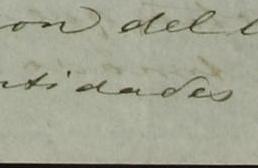 on del
ntidades